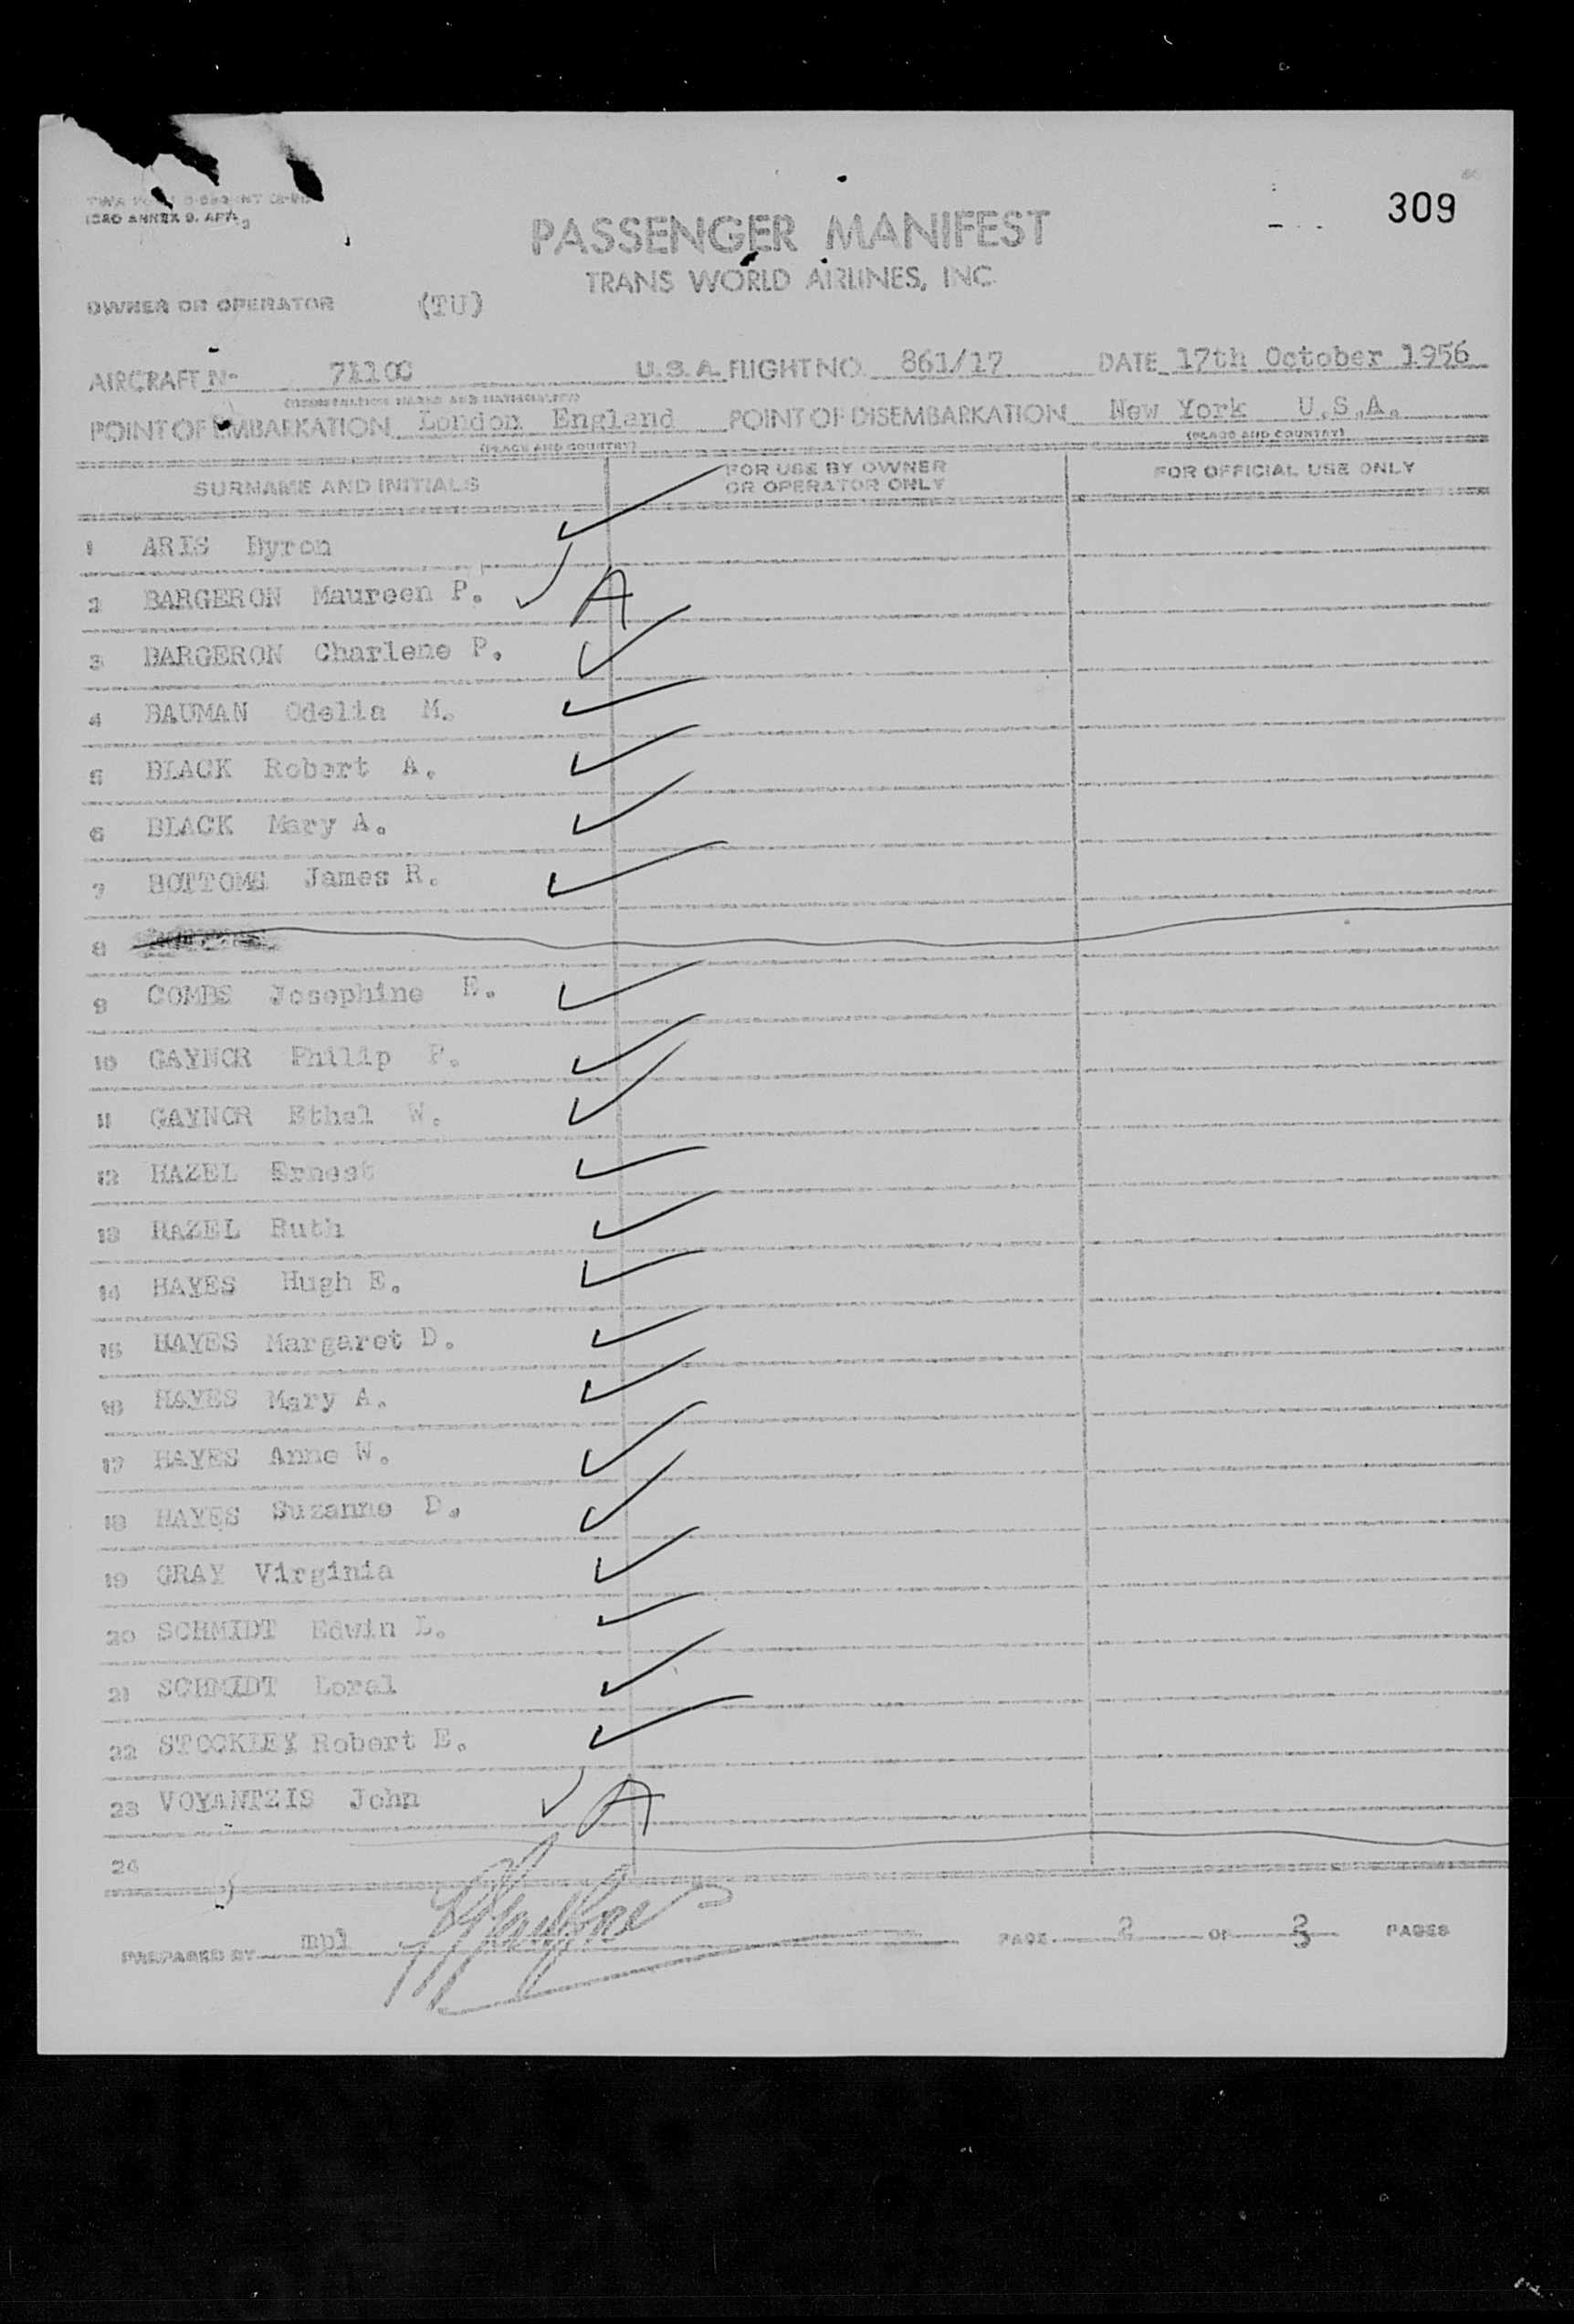 309
ICAO ANNEX 9. APP. 3
PASSENGER MANIFEST
TRANS WORLD AIRLINES, INC.
OWNER OR OPERATOR (TU)
AIRCRAFT No U.S.A. FLIGHT NO. 861/17 DATE 17th October 1956
(REGISTRATION MARKS AND NATIONALITY)
POINT OF EMBARKATION London England POINT OF DISEMBARKATION New York U.S.A.
(PLACE AND COUNTRY) (PLACE AND COUNTRY)
SURNAME AND INITIALS FOR USE BY OWNER OR OPERATOR ONLY FOR OFFICIAL USE ONLY
1 ARIS Byron
2 BARGERON Maureen P. A
3 BARGERON Charlene P.
4 BAUMAN Odelia M.
5 BLACK Robert A.
6 BLACK Mary A.
7 BOTTOMS James R.
8
9 COMBS Josephine E.
10 GAYNOR Philip P.
11 GAYNOR Ethel W.
12 HAZEL Ernest
13 HAZEL Ruth
14 HAYES Hugh E.
15 HAYES Margaret D.
16 HAYES Mary A.
17 HAYES Anne W.
18 HAYES Suzanne D.
19 GRAY Virginia
20 SCHMIDT Edwin L.
21 SCHMIDT Loral
22 STOCKLEY Robert E.
23 VOYANTZIS John A
24
PREPARED BY mpl PAGE 2 OF 3 PAGES